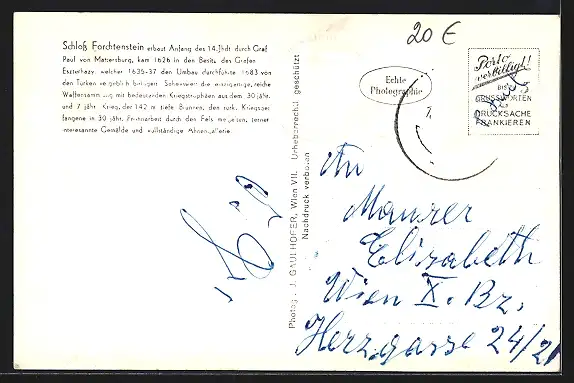 Schloß Forchtenstein erbaut Anfang des 14. Jhdt durch Graf
Paul von Mattersburg, kam 1626 in den Besitz des Grafen
Eszterhazy, welcher 1635-37 den Umbau durchführte. 1683 von
den Türken vergeblich belagert. Sehenswert die einzigartige, reiche
Waffensammlung mit bedeutenden Kriegstrophäen aus dem 30 jähr.
und 7 jähr. Krieg, der 142 m tiefe Brunnen, den türk. Kriegsge-
fangene in 30 jähr. Fronarbeit durch den Fels meißelten, ferner
interessante Gemälde und vollständige Ahnengalerie.
20 €
Echte
Photographie
Porto
verbilligt!
BIS 5
GRUSSWORTEN
ALS
DRUCKSACHE
FRANKIEREN
Photogr. J. GAULHOFER, Wien VII. Urheberrechtl. geschützt
Nachdruck verboten
An
Maurer
Elisabeth
Wien X. Bz.
Herzgasse 24/21